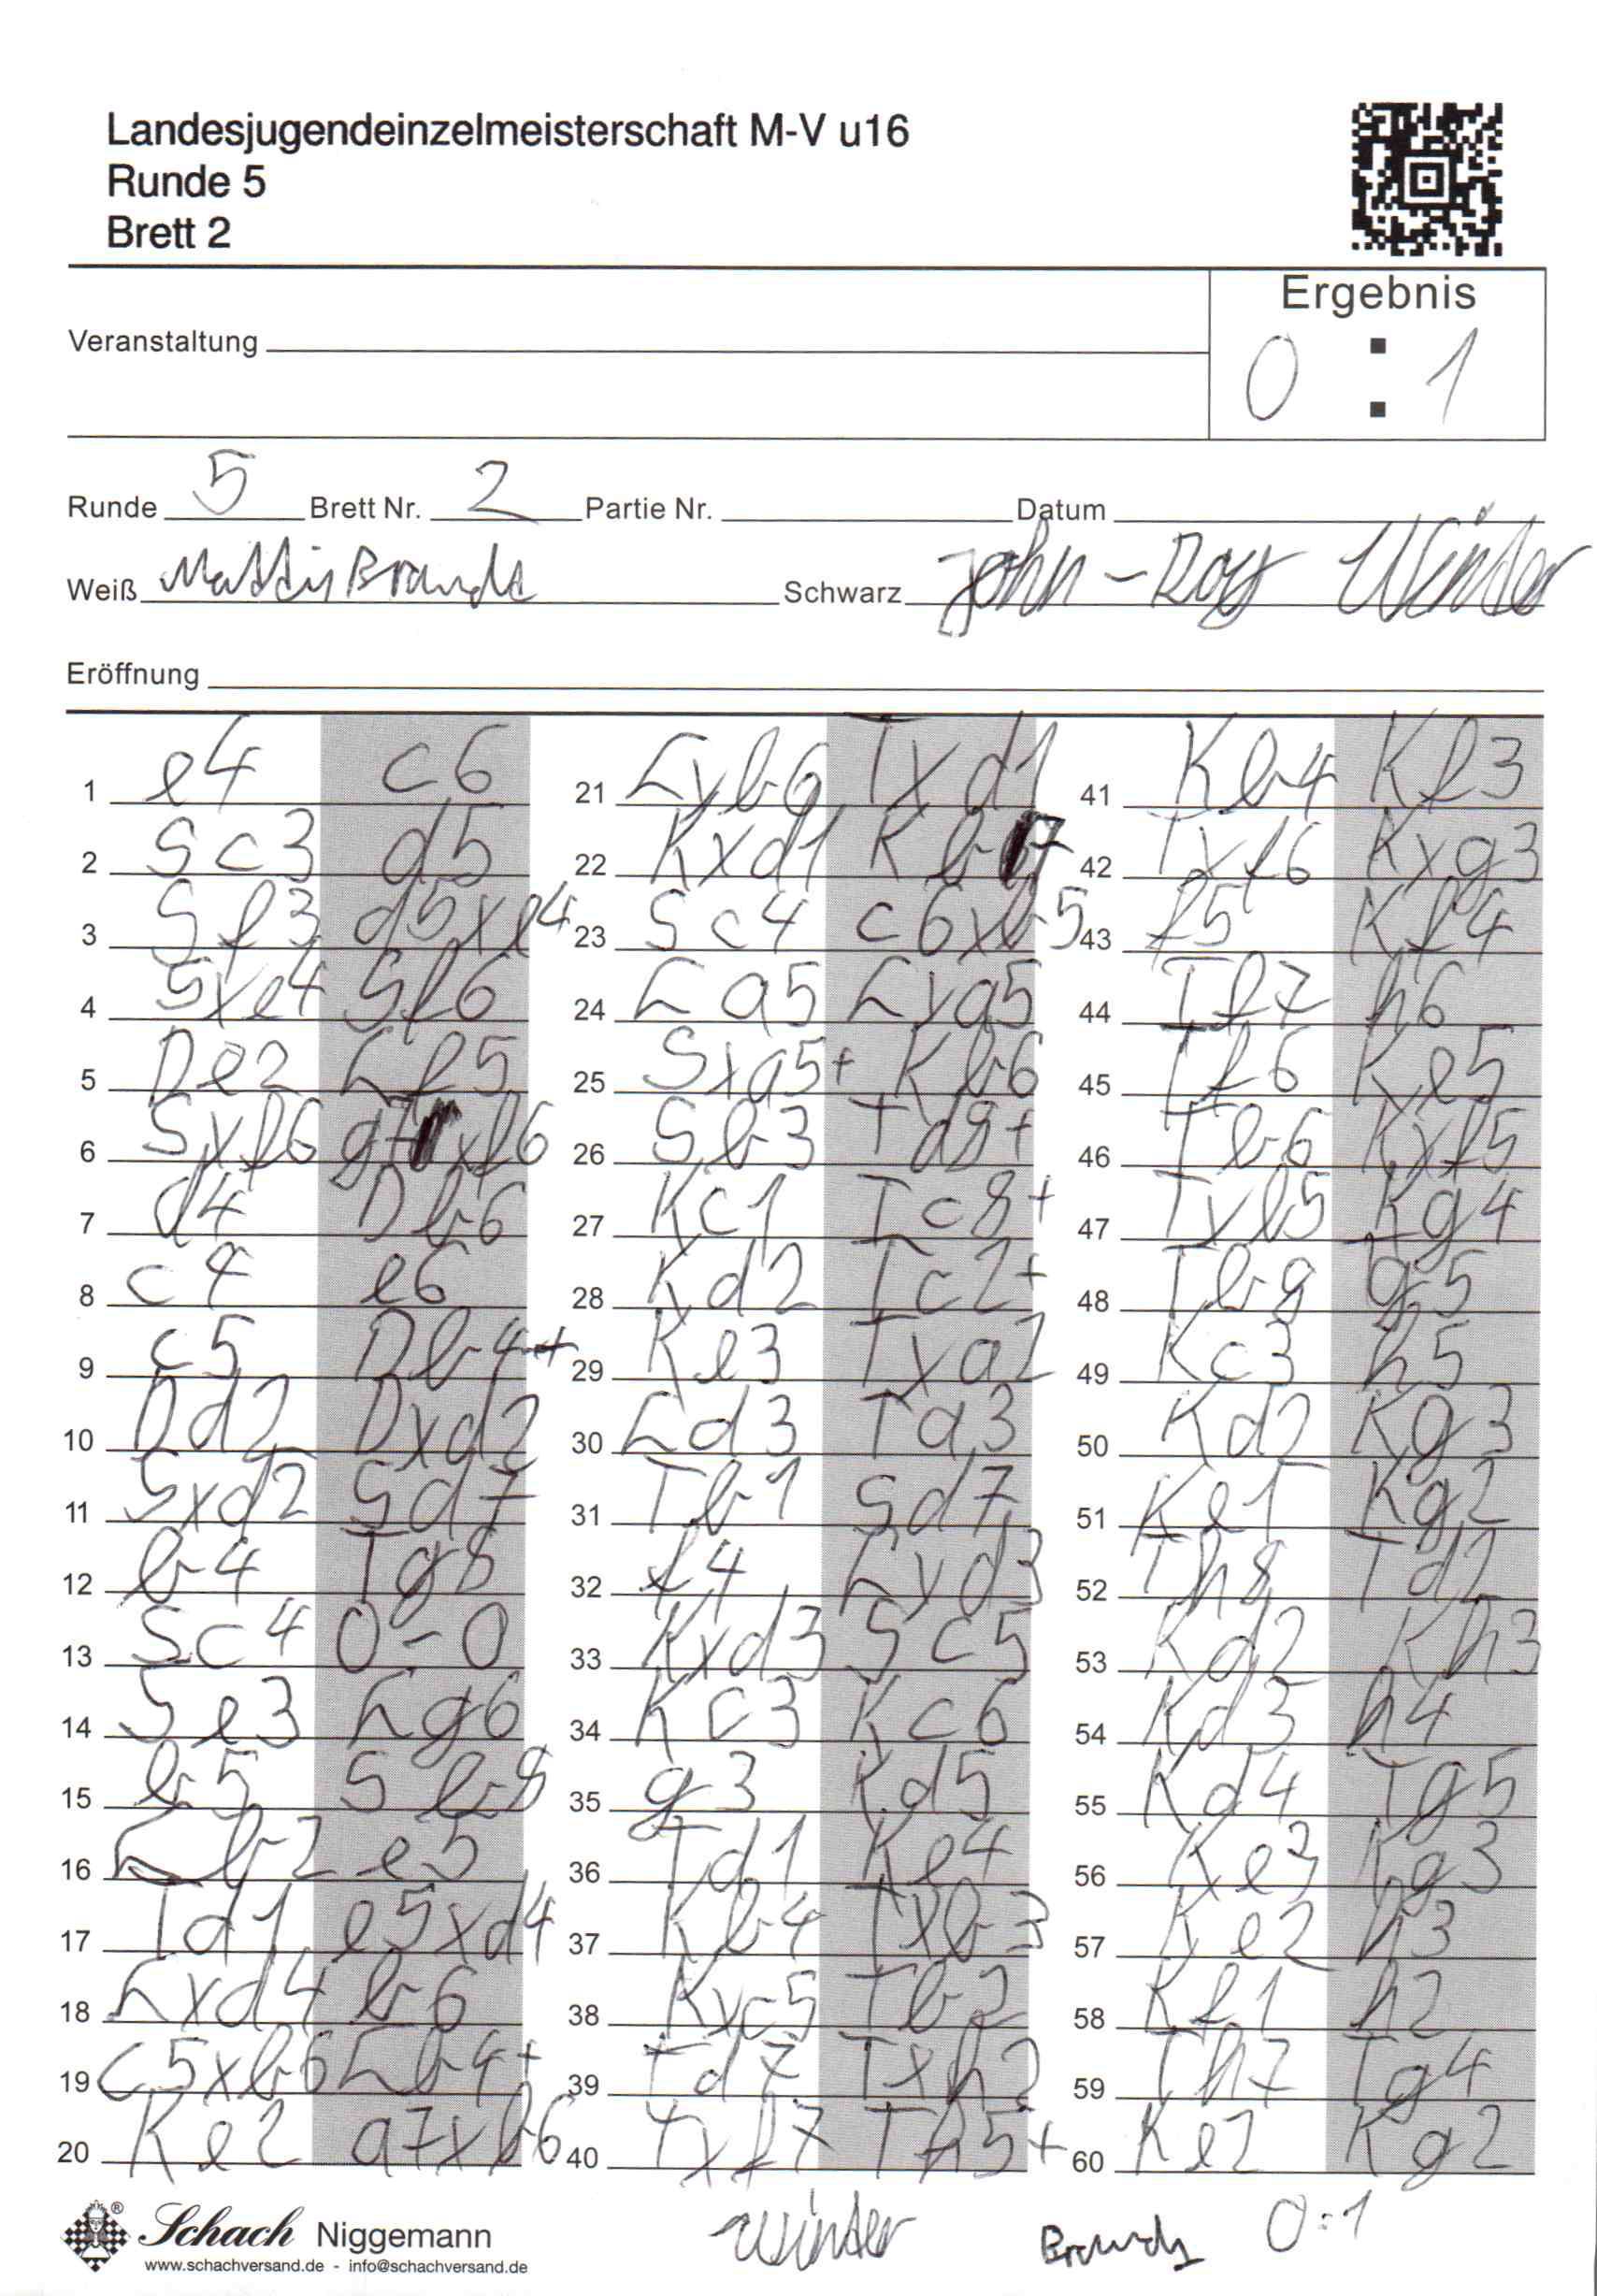 Landesjugendeinzelmeisterschaft M-V u16
Runde 5
Brett 2
Ergebnis
0 : 1
Veranstaltung
Runde 5 Brett Nr. 2 Partie Nr. Datum
Weiß Mattis Brandt Schwarz John-Roy Winter
Eröffnung
1 e4 c6 21 Lxb6 Txd1 41 Kb4 Kf3
2 Sc3 d5 22 Kxd1 Kb7 42 Txf6 Kxg3
3 Sf3 d5xe4 23 Sc4 c6xb5 43 f5 Kf4
4 Sxe4 Sf6 24 La5 Lxa5 44 Tf7 h6
5 De2 Lf5 25 Sxa5+ Kb6 45 Tf6 Ke5
6 Sxf6 g7xf6 26 Sb3 Td8+ 46 Tb6 Kxf5
7 d4 Db6 27 Kc1 Tc8+ 47 Txb5 Kg4
8 c4 e6 28 Kd2 Tc2+ 48 Tb8 g5
9 c5 Db4+ 29 Ke3 Txa2 49 Kc3 h5
10 Dd2 Dxd2 30 Ld3 Ta3 50 Kd2 Kg3
11 Sxd2 Sd7 31 Tb1 Sd7 51 Ke1 Kg2
12 b4 Tg8 32 f4 Lxd3 52 Th8 Td2
13 Sc4 0-0 33 Kxd3 Sc5 53 Kd2 Kh3
14 Se3 Lg6 34 Kc3 Kc6 54 Kd3 h4
15 b5 Sb8 35 g3 Kd5 55 Kd4 Tg5
16 Lb2 e5 36 Td1 Ke4 56 Ke3 Kg3
17 Td1 e5xd4 37 Kb4 Txb3 57 Ke2 h3
18 Lxd4 b6 38 Kxc5 Tb2 58 Kf1 h2
19 c5xb6 Lb4+ 39 Td7 Txh2 59 Th7 Tg4
20 Ke2 a7xb6 40 Txf7 Th5+ 60 Ke2 Kg2
Schach Niggemann
www.schachversand.de - info@schachversand.de
Winter
0:1